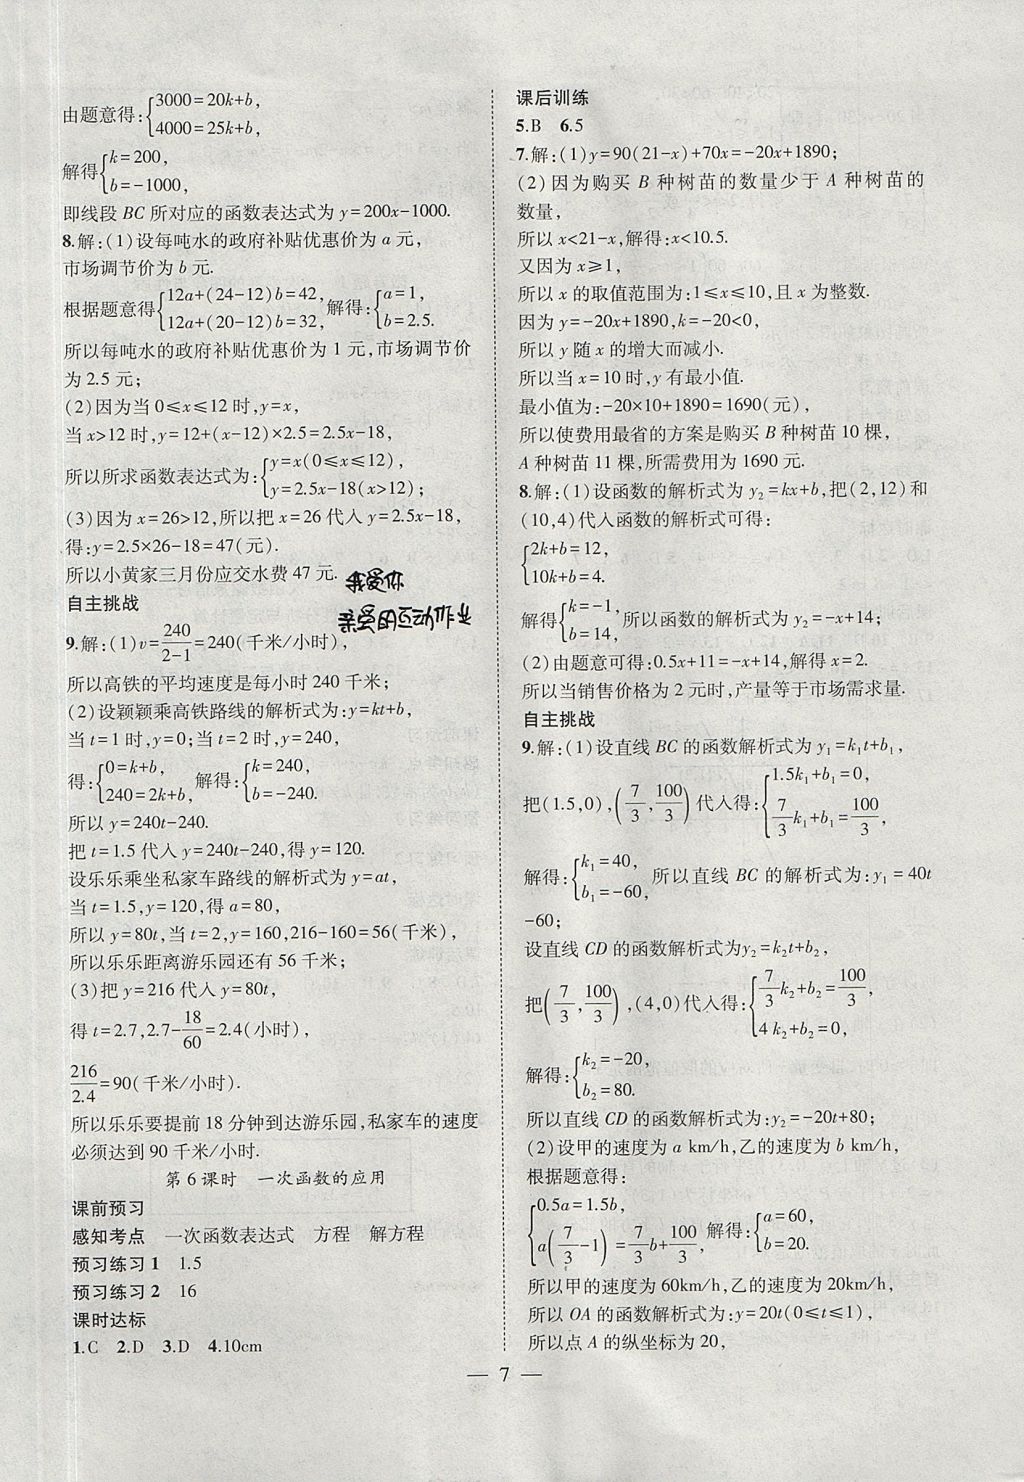 由题意得:{3000=20k+b,
4000=25k+b,
解得{k=200,
b=-1000,
即线段 BC 所对应的函数表达式为 y=200x-1000.
8.解:(1)设每吨水的政府补贴优惠价为 a 元,
市场调节价为 b 元.
根据题意得{12a+(24-12)b=42, 解得:{a=1,
12a+(20-12)b=32, b=2.5.
所以每吨水的政府补贴优惠价为 1 元,市场调节价
为 2.5 元;
(2)因为当 0≤x≤12 时,y=x,
当 x>12 时,y=12+(x-12)×2.5=2.5x-18,
所以所求函数表达式为:{y=x(0≤x≤12),
y=2.5x-18(x>12);
(3)因为 x=26>12,所以把 x=26 代入 y=2.5x-18,
得:y=2.5×26-18=47(元).
所以小黄家三月份应交水费 47 元.
我爱你
亲爱的互动作业
自主挑战
9.解:(1)v=240/(2-1)=240(千米/小时),
所以高铁的平均速度是每小时 240 千米;
(2)设颖颖乘高铁路线的解析式为:y=kt+b,
当 t=1 时,y=0;当 t=2 时,y=240,
得:{0=k+b, 解得:{k=240,
240=2k+b, b=-240.
所以 y=240t-240.
把 t=1.5 代入 y=240t-240,得 y=120.
设乐乐乘坐私家车路线的解析式为 y=at,
当 t=1.5,y=120,得 a=80,
所以 y=80t,当 t=2,y=160,216-160=56(千米),
所以乐乐距离游乐园还有 56 千米;
(3)把 y=216 代入 y=80t,
得 t=2.7,2.7-18/60=2.4(小时),
216/2.4=90(千米/小时).
所以乐乐要提前 18 分钟到达游乐园,私家车的速度
必须达到 90 千米/小时.
第 6 课时 一次函数的应用
课前预习
感知考点 一次函数表达式 方程 解方程
预习练习 1 1.5
预习练习 2 16
课时达标
1.C 2.D 3.D 4.10cm
课后训练
5.B 6.5
7.解:(1)y=90(21-x)+70x=-20x+1890;
(2)因为购买 B 种树苗的数量少于 A 种树苗的
数量,
所以 x<21-x,解得:x<10.5.
又因为 x≥1,
所以 x 的取值范围为:1≤x≤10,且 x 为整数.
因为 y=-20x+1890,k=-20<0,
所以 y 随 x 的增大而减小.
所以当 x=10 时,y 有最小值.
最小值为:-20×10+1890=1690(元),
所以使费用最省的方案是购买 B 种树苗 10 棵,
A 种树苗 11 棵,所需费用为 1690 元.
8.解:(1)设函数的解析式为 y₂=kx+b,把(2,12)和
(10,4)代入函数的解析式可得:
{2k+b=12,
10k+b=4.
解得{k=-1,
b=14, 所以函数的解析式为 y₂=-x+14;
(2)由题意可得:0.5x+11=-x+14,解得 x=2.
所以当销售价格为 2 元时,产量等于市场需求量.
自主挑战
9.解:(1)设直线 BC 的函数解析式为 y₁=k₁t+b₁,
把(1.5,0),(7/3,100/3)代入得:{1.5k₁+b₁=0,
7/3k₁+b₁=100/3,
解得:{k₁=40,
b₁=-60, 所以直线 BC 的解析式为:y₁=40t
-60;
设直线 CD 的函数解析式为y₂=k₂t+b₂,
把(7/3,100/3),(4,0)代入得:{7/3k₂+b₂=100/3,
4k₂+b₂=0,
解得:{k₂=-20,
b₂=80.
所以直线 CD 的函数解析式为:y₂=-20t+80;
(2)设甲的速度为 a km/h,乙的速度为 b km/h,
根据题意得:
{0.5a=1.5b,
a(7/3-1)=7/3b+100/3, 解得:{a=60,
b=20.
所以甲的速度为 60km/h,乙的速度为 20km/h,
所以 OA 的函数解析式为:y=20t(0≤t≤1),
所以点 A 的纵坐标为 20,
— 7 —